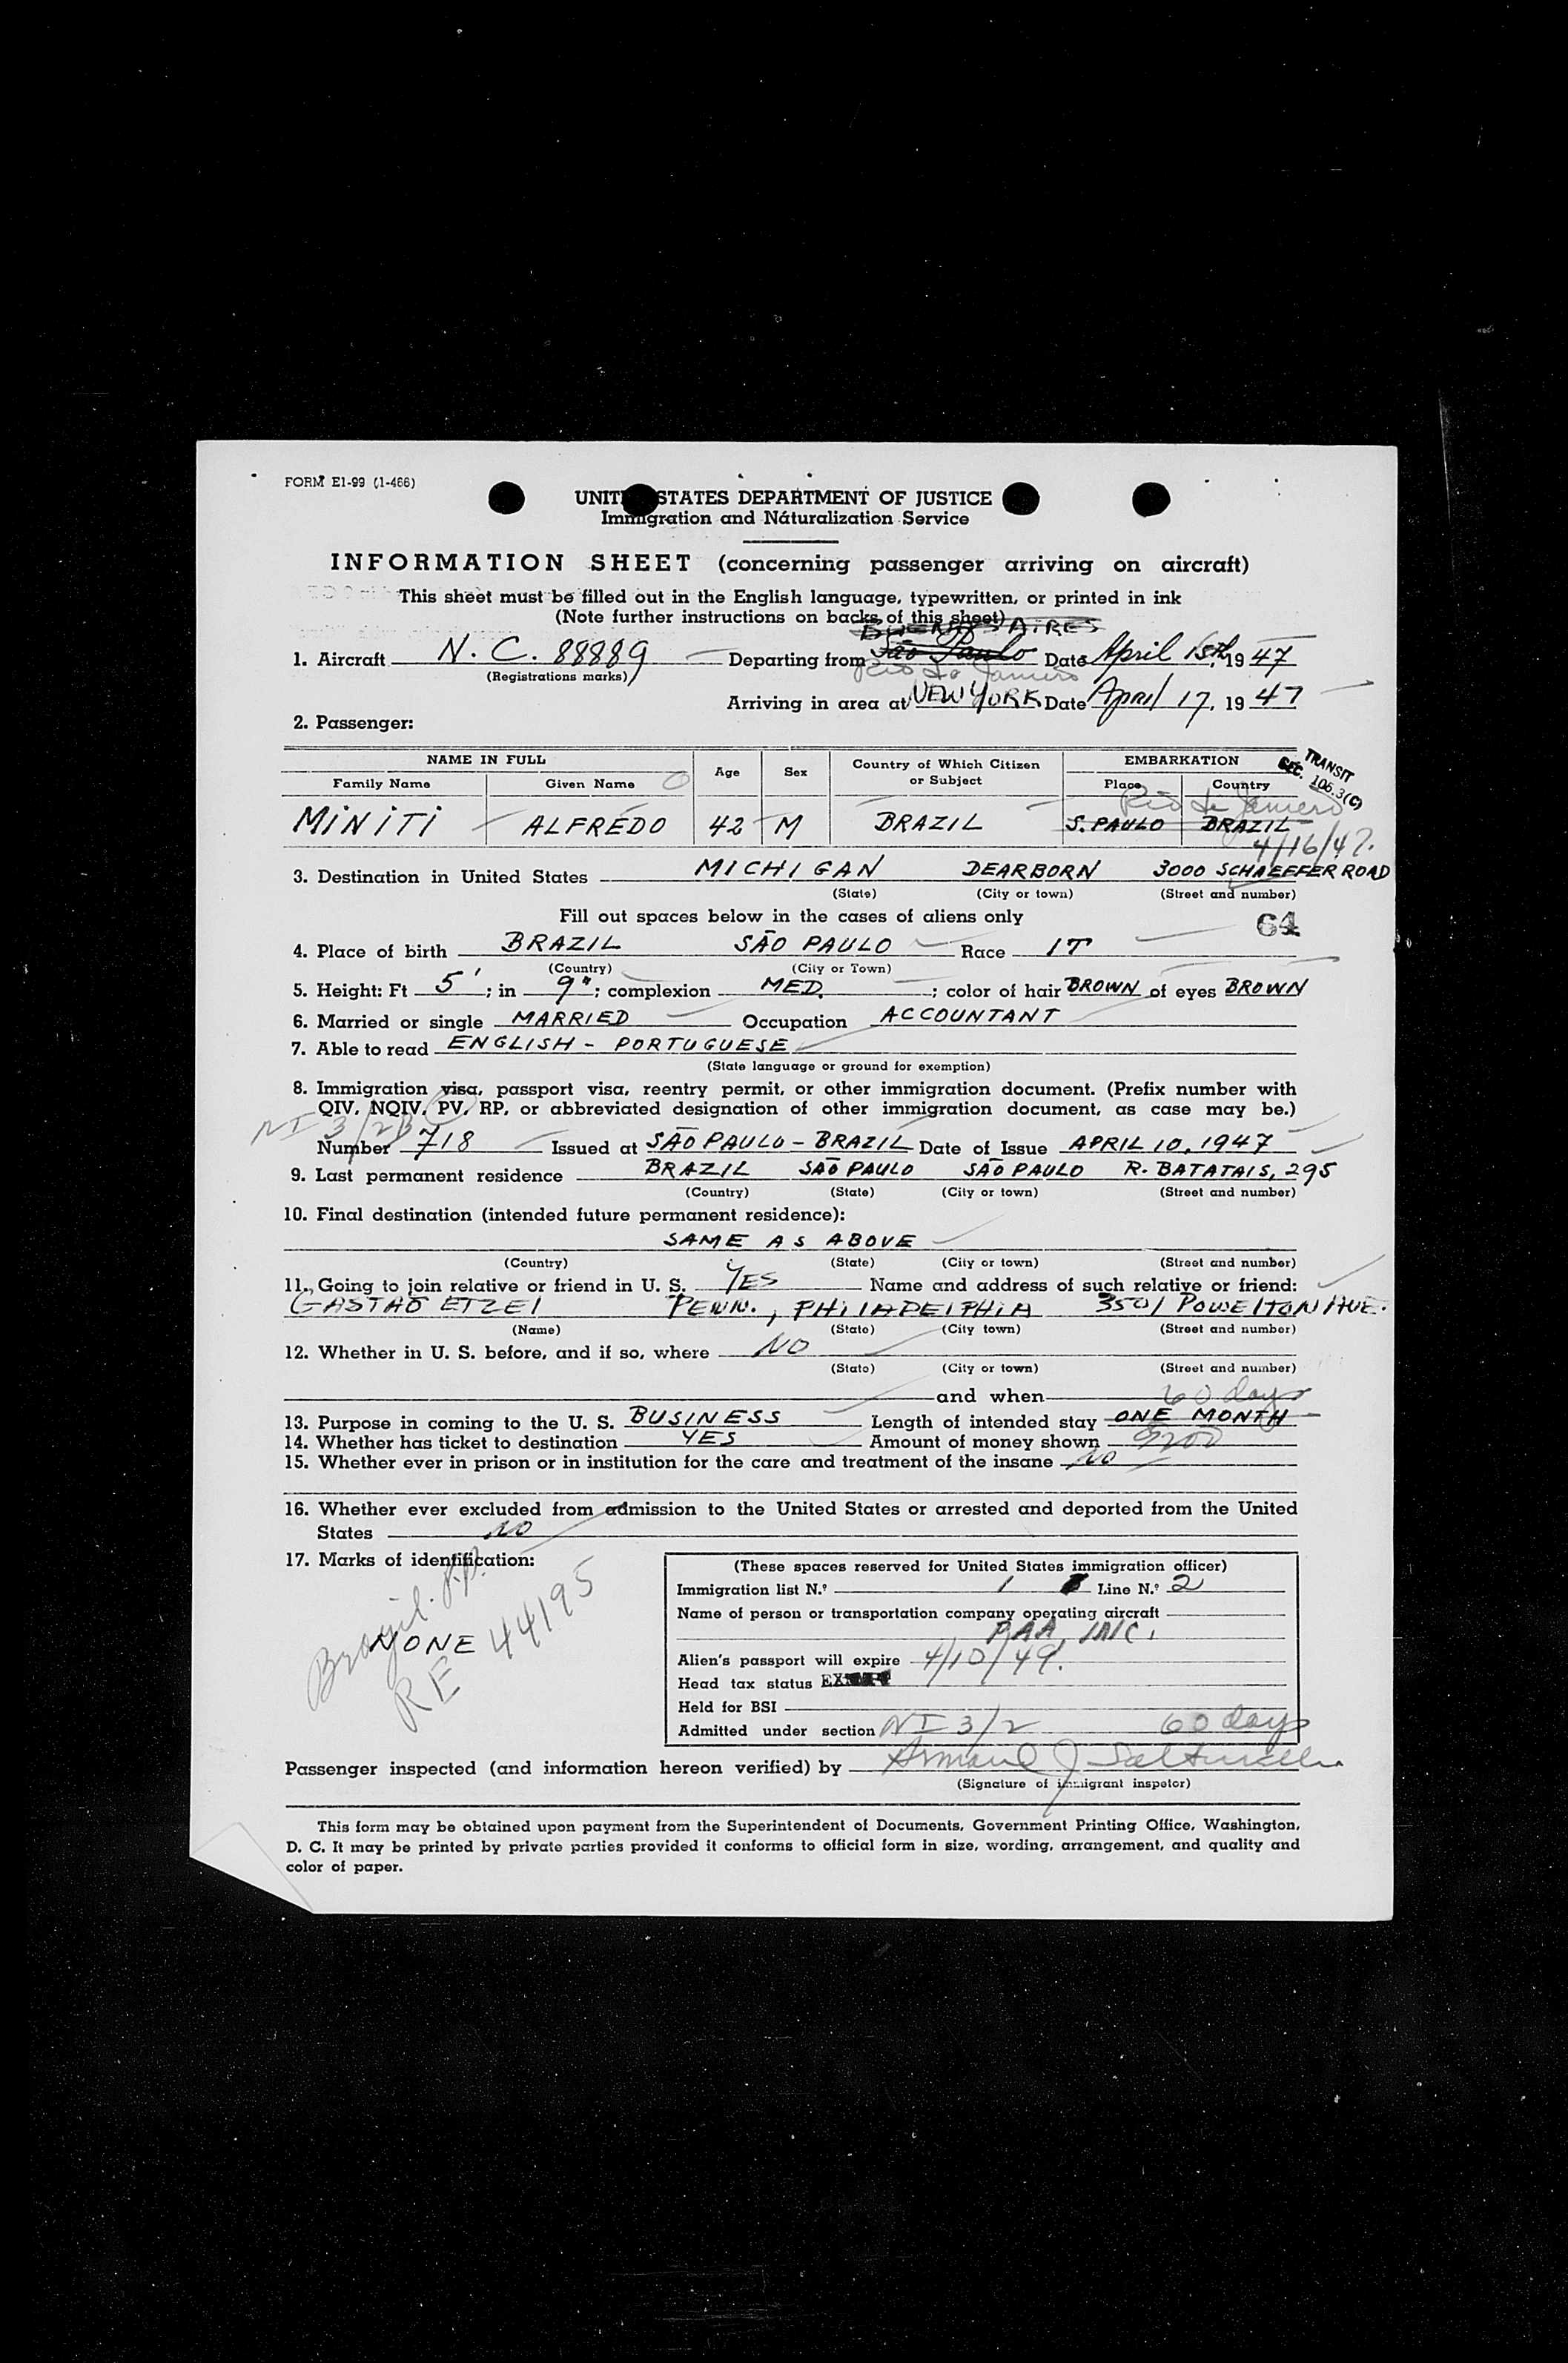 FORM E1-99 (1-466)
UNITED STATES DEPARTMENT OF JUSTICE
Immigration and Naturalization Service
INFORMATION SHEET (concerning passenger arriving on aircraft)
This sheet must be filled out in the English language, typewritten, or printed in ink
(Note further instructions on backs of this sheet)
BUENOS AIRES
1. Aircraft N. C. 88889 Departing from São Paulo Date April 15th, 1947
(Registrations marks) Rio de Janeiro
Arriving in area at NEW YORK Date April 17, 1947
2. Passenger:
NAME IN FULL Age Sex Country of Which Citizen or Subject EMBARKATION
Family Name Given Name Place Country
TRANSIT
SEC. 106.3(C)
Rio de Janiero
MINITI ALFREDO 42 M BRAZIL S. PAULO BRAZIL
4/16/47.
3. Destination in United States MICHIGAN DEARBORN 3000 SCHAEFFER ROAD
(State) (City or town) (Street and number)
Fill out spaces below in the cases of aliens only 64
4. Place of birth BRAZIL SÃO PAULO Race IT
(Country) (City or Town)
5. Height: Ft 5' ; in 9" ; complexion MED. ; color of hair BROWN of eyes BROWN
6. Married or single MARRIED Occupation ACCOUNTANT
7. Able to read ENGLISH - PORTUGUESE
(State language or ground for exemption)
8. Immigration visa, passport visa, reentry permit, or other immigration document. (Prefix number with
QIV, NQIV, PV, RP, or abbreviated designation of other immigration document, as case may be.)
NI 3/2B
Number 718 Issued at SÃO PAULO - BRAZIL Date of Issue APRIL 10, 1947
9. Last permanent residence BRAZIL SÃO PAULO SÃO PAULO R. BATATAIS, 295
(Country) (State) (City or town) (Street and number)
10. Final destination (intended future permanent residence):
SAME AS ABOVE
(Country) (State) (City or town) (Street and number)
11. Going to join relative or friend in U. S. YES Name and address of such relative or friend:
GASTAO ETZEL PENN., PHILADELPHIA 3501 POWELTON AVE.
(Name) (State) (City town) (Street and number)
12. Whether in U. S. before, and if so, where NO
(State) (City or town) (Street and number)
and when
60 days
13. Purpose in coming to the U. S. BUSINESS Length of intended stay ONE MONTH
14. Whether has ticket to destination YES Amount of money shown $200
15. Whether ever in prison or in institution for the care and treatment of the insane NO
16. Whether ever excluded from admission to the United States or arrested and deported from the United
States NO
17. Marks of identification:
Brazil. P.P.
NONE
RE 44195
(These spaces reserved for United States immigration officer)
Immigration list N.º 1 Line N.º 2
Name of person or transportation company operating aircraft
PAA, INC.
Alien's passport will expire 4/10/49.
Head tax status
Held for BSI
Admitted under section NI 3/2 60 days
Passenger inspected (and information hereon verified) by Armand J
(Signature of immigrant inspetor)
This form may be obtained upon payment from the Superintendent of Documents, Government Printing Office, Washington,
D. C. It may be printed by private parties provided it conforms to official form in size, wording, arrangement, and quality and
color of paper.